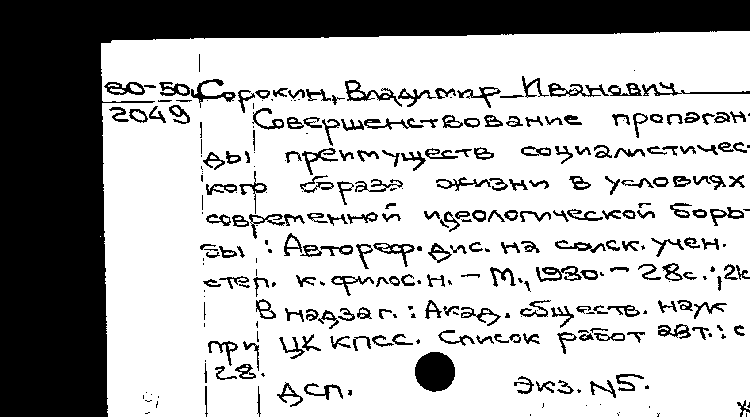 80-50 Сорокин, Владимир Иванович.
2049 Совершенствование пропаган-
ды преимуществ социалистичес-
кого образа жизни в условиях
современной идеологической борь-
бы : Автореф. дис. на соиск. учен.
степ. к. филос. н. – М., 1980. – 28с.;
В надзаг. : Акад. обществ. наук
при ЦК КПСС. Список работ авт.: с
28.
ДСП. Экз. N5.